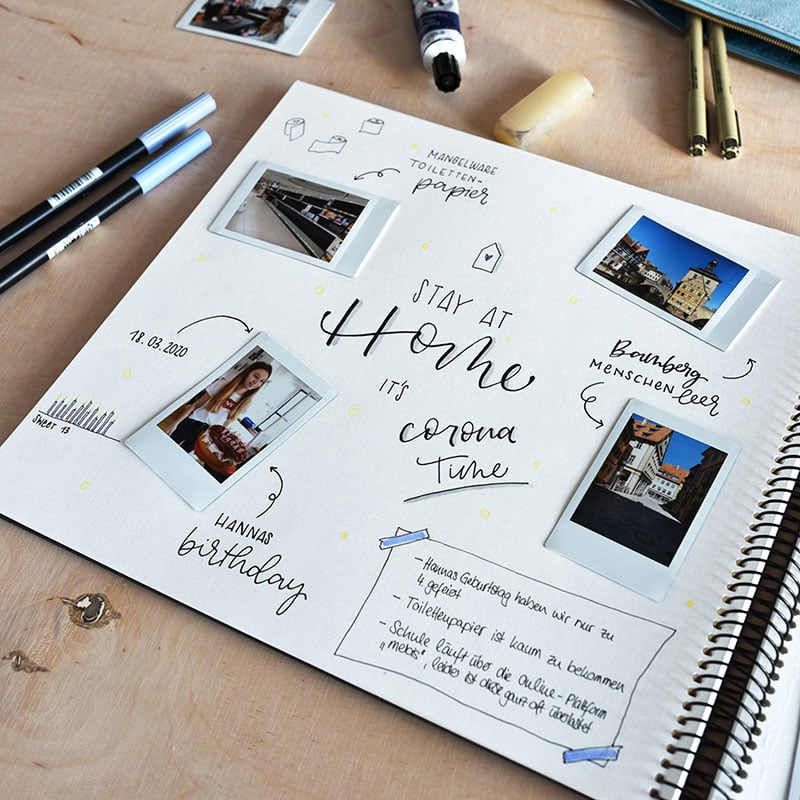 MANGELWARE
TOILETTEN-
papier
STAY AT
Home
IT'S
corona
Time
Bamberg
MENSCHENleer
18.03.2020
SWEET 13
HANNAS
birthday
- Hannas Geburtstag haben wir nur zu
4. gefeiert
- Toilettenpapier ist kaum zu bekommen
- Schule läuft über die Online-Plattform
„mebis", leider ist diese ganz oft überlastet